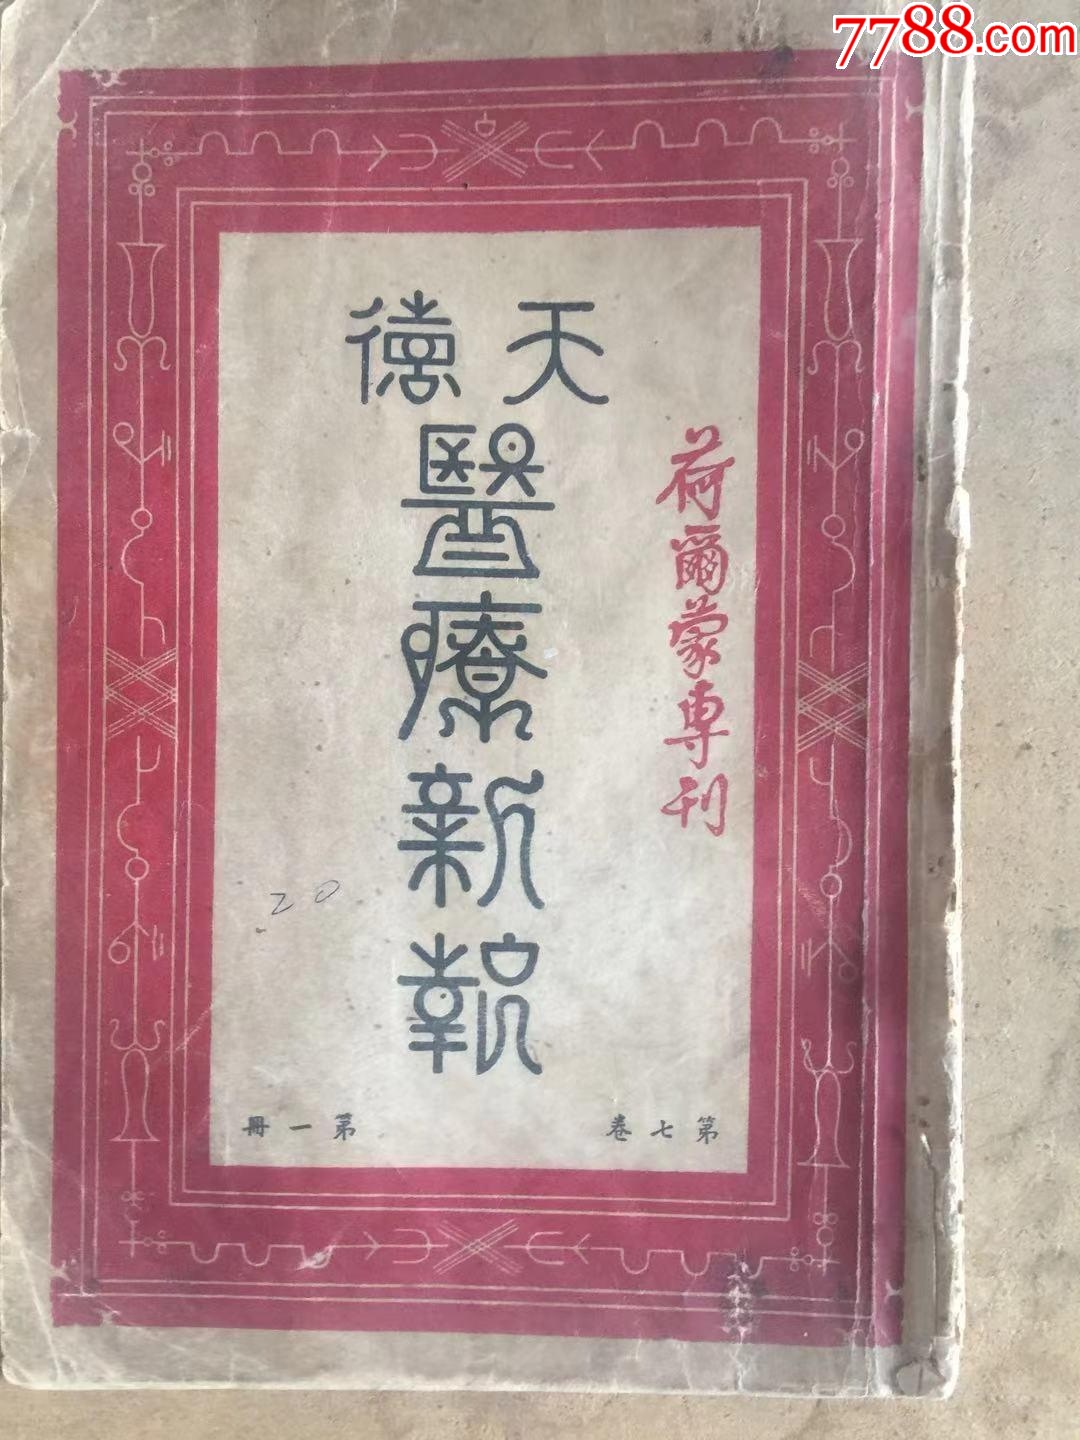 7788.com
天德
醫療新報
荷爾蒙專刊
20
第七卷
第一冊